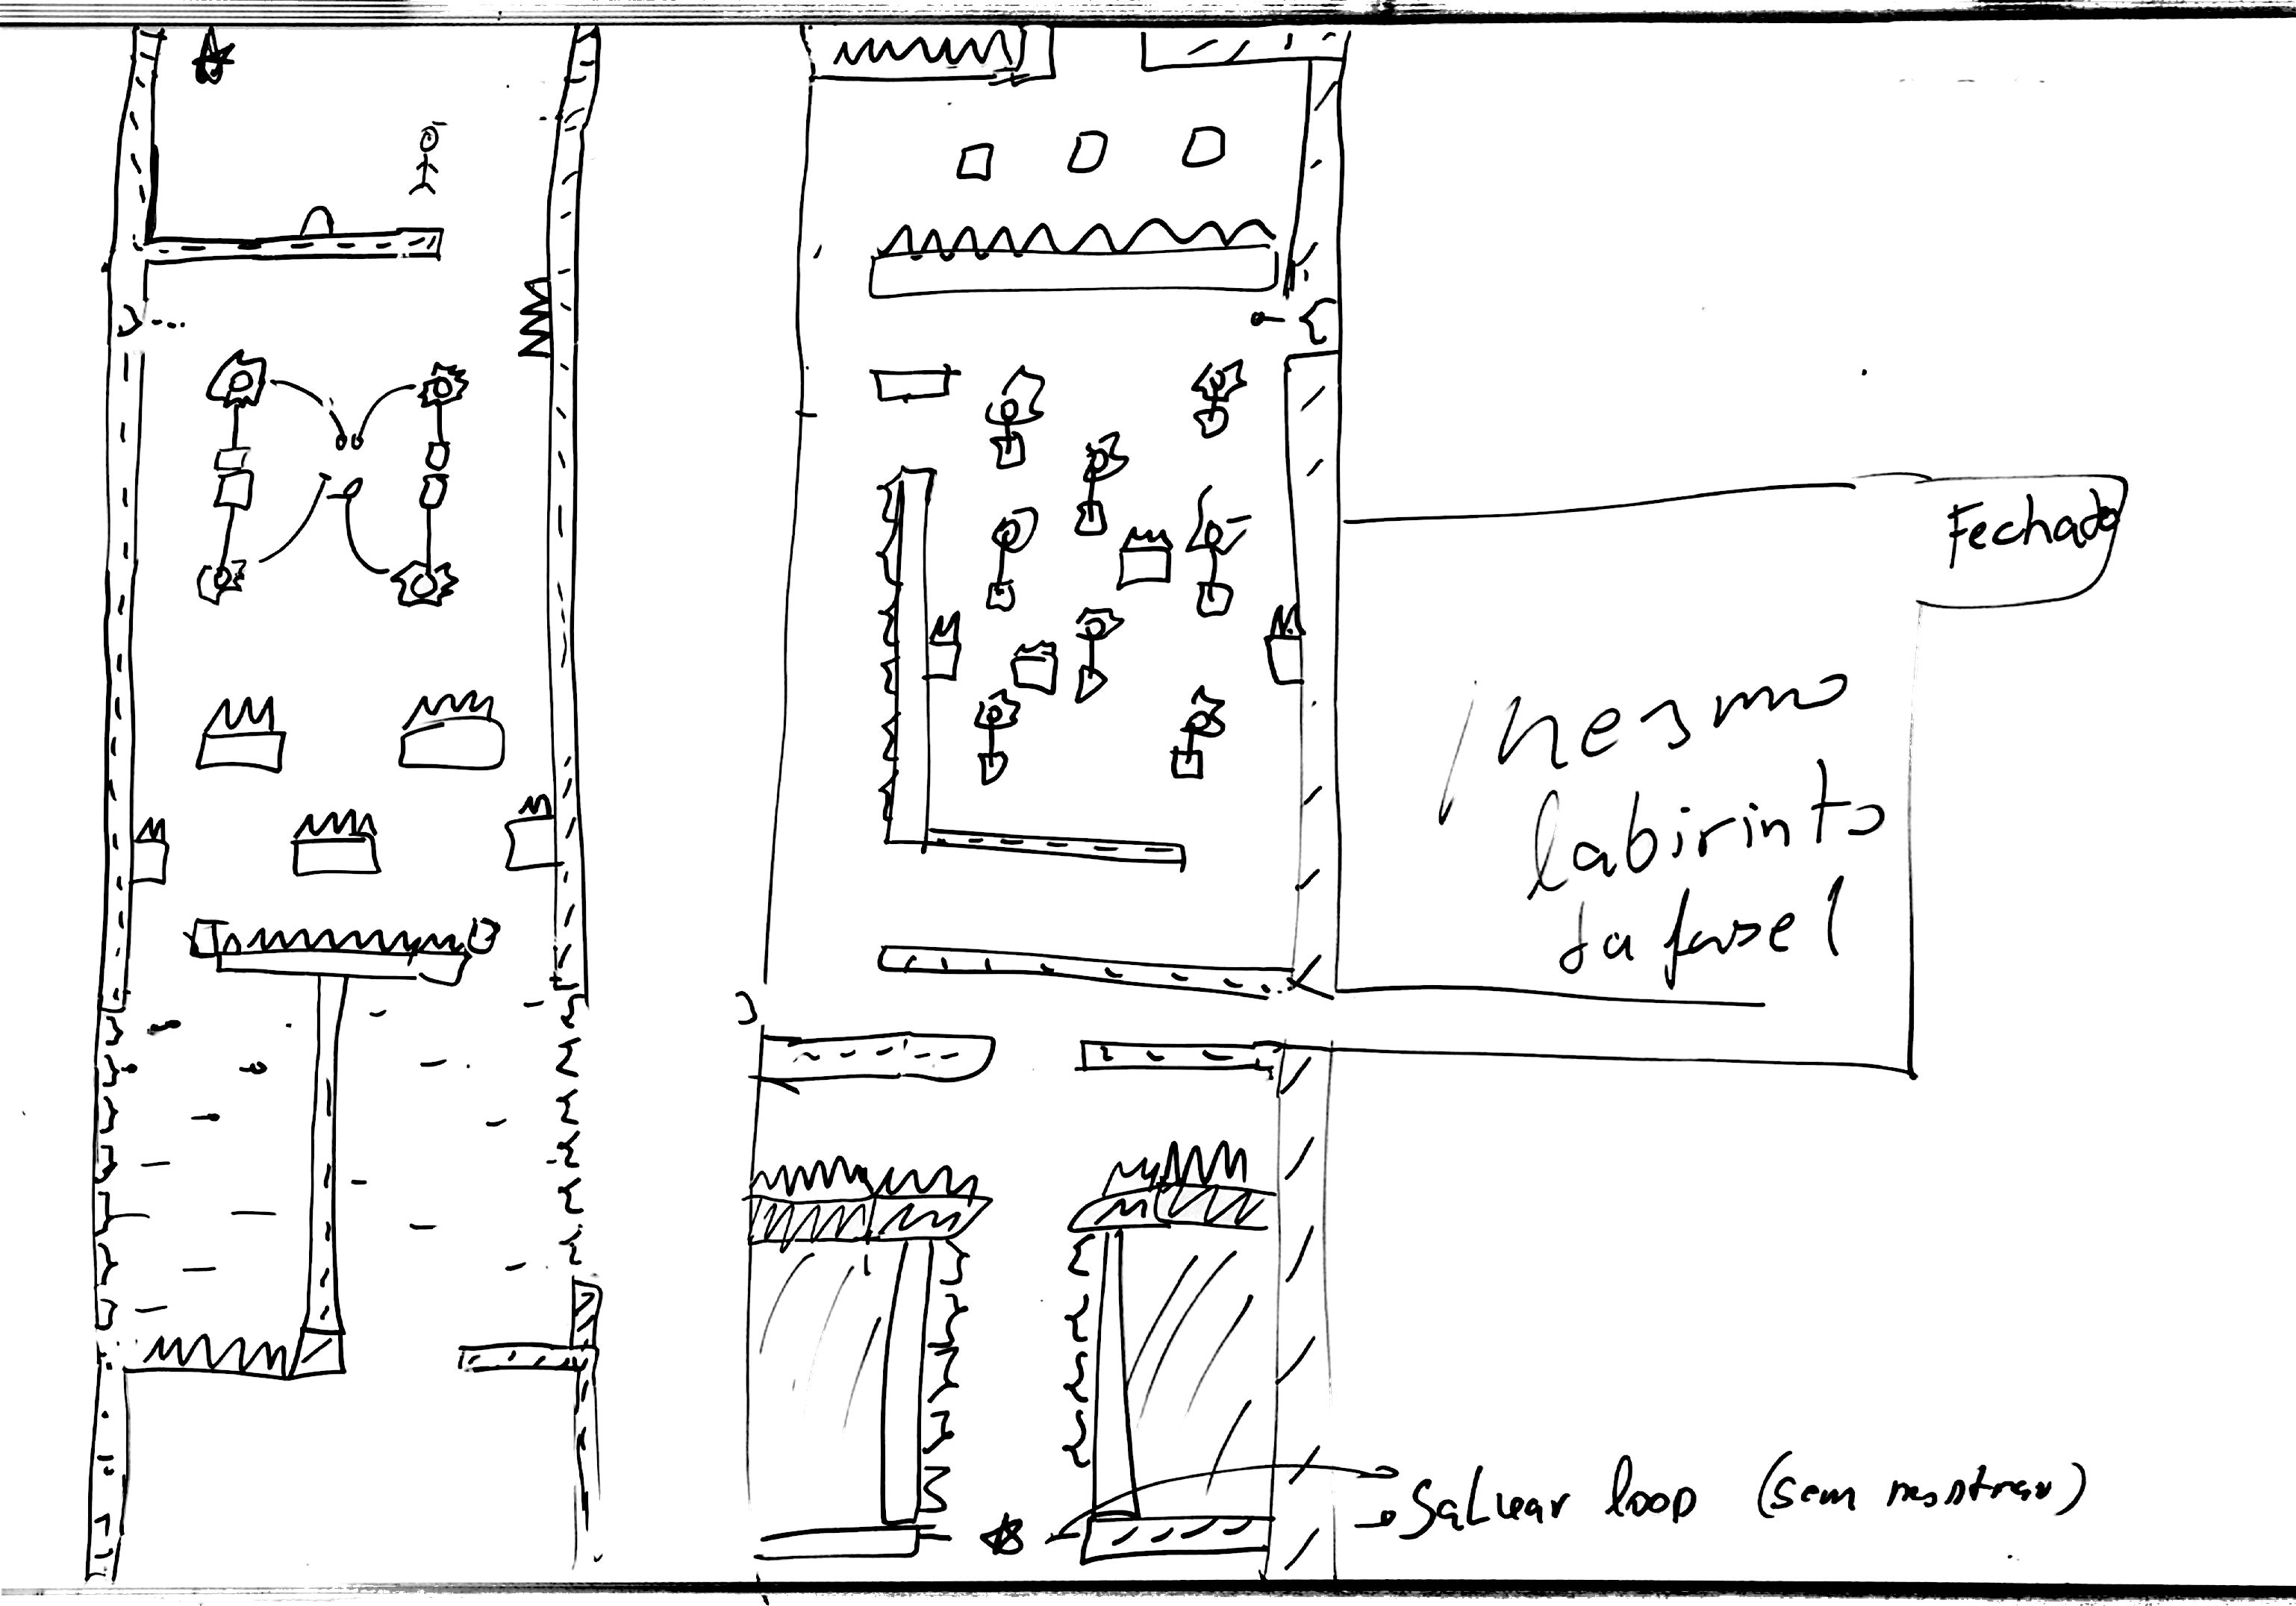 Fechado
mesmo
labirinto
da fase 1
Salvar loop (sem mostrar)